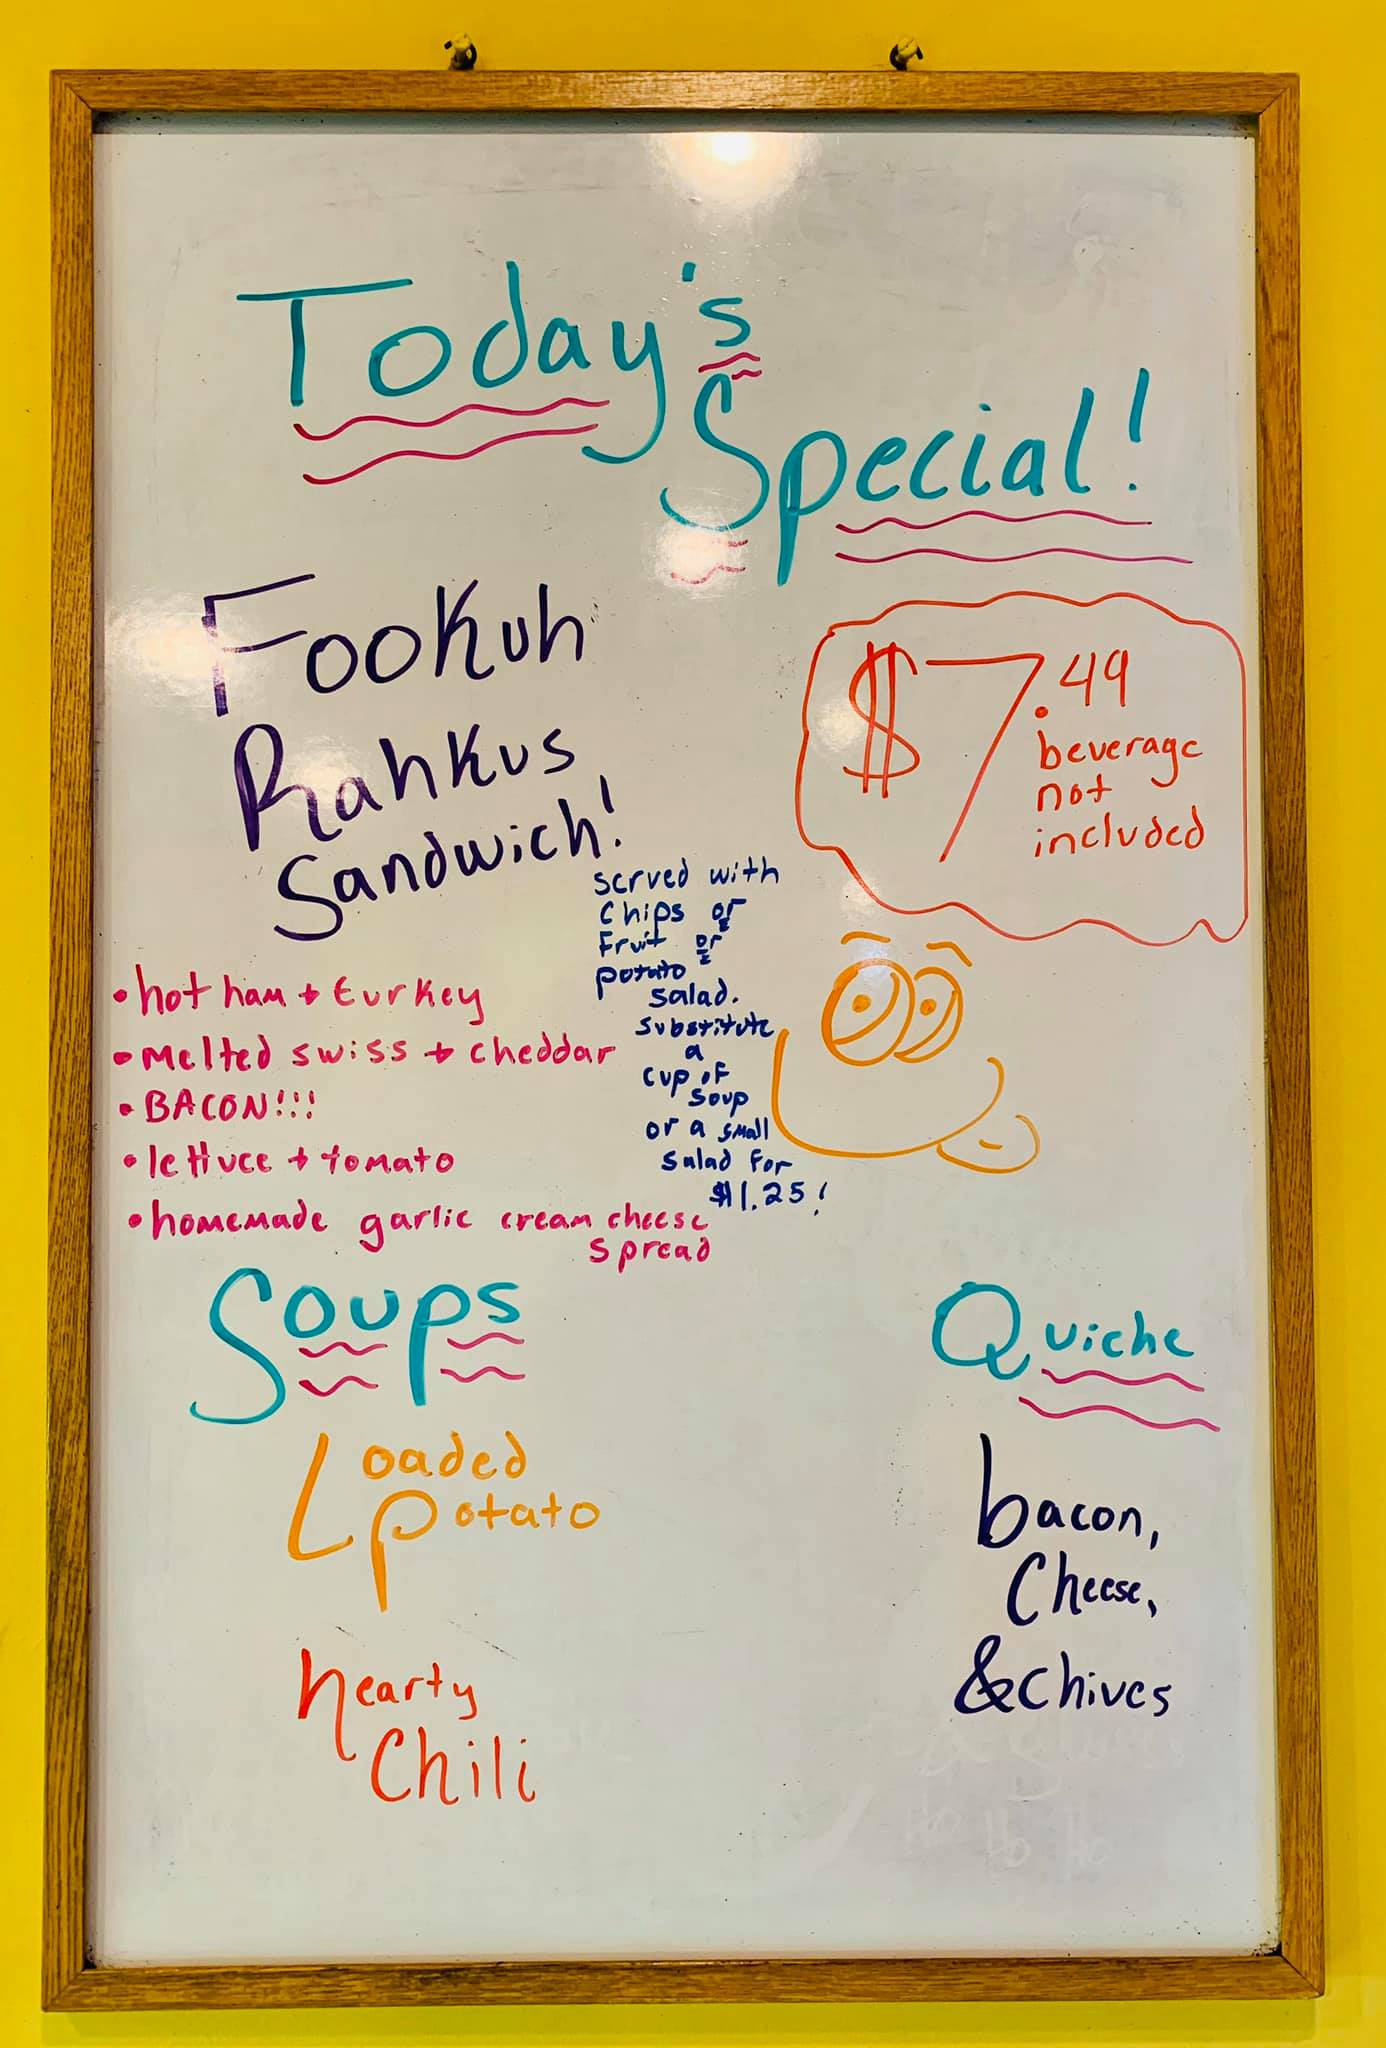 Today's
Special!
Fookuh
Rahkus
Sandwich!
$7.49
beverage
not
included
served with
chips or
fruit or
potato
salad.
substitute
a
cup of
soup
or a small
salad for
$1.25!
• hot ham + turkey
• melted swiss + cheddar
• BACON!!!
• lettuce + tomato
• homemade garlic cream cheese
spread
Soups
Loaded
Potato
hearty
Chili
Quiche
bacon,
Cheese,
& chives
Ho Ho Ho